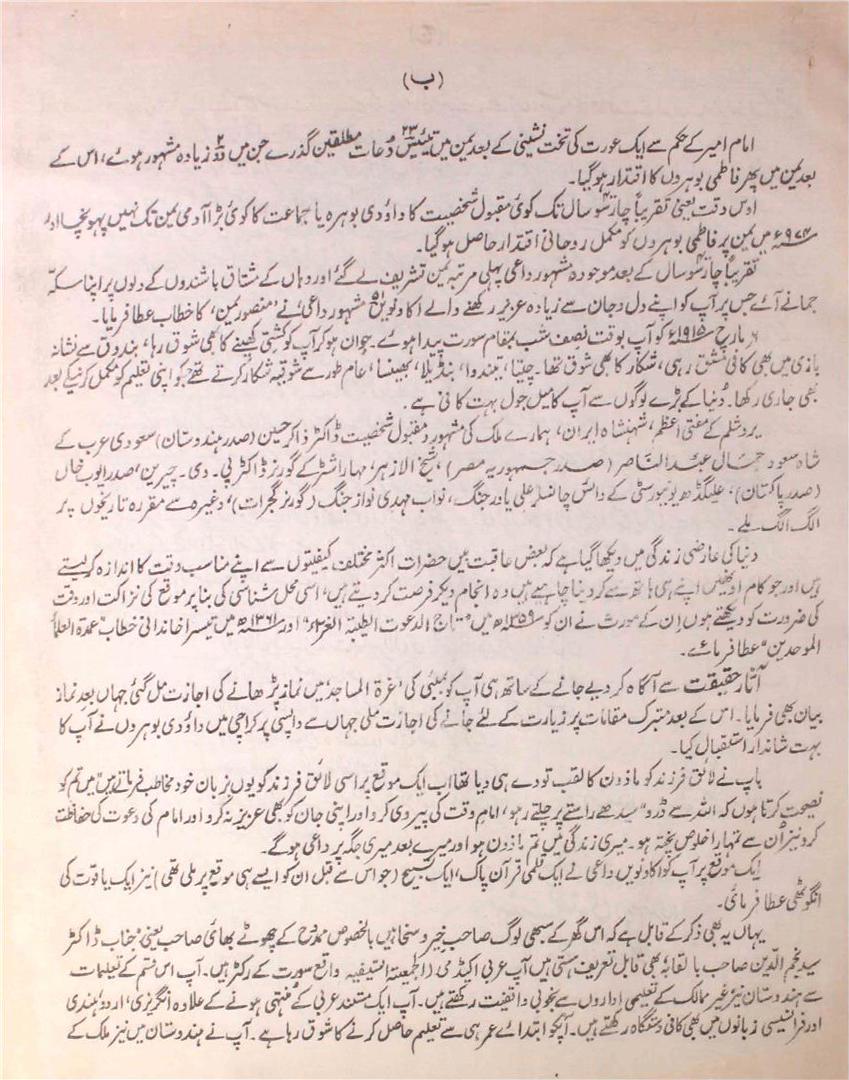 (ب)
امام امیر کے حکم سے ایک عورت کی تخت نشینی کے بعد یمن میں تیئیس ۲۳ دُعات مطلقین گذرے جن میں دو ۲ زیادہ مشہور ہوئے، اس کے
بعد یمن میں پھر فاطمی بوہروں کا اقتدار ہوگیا۔
اوس وقت یعنی تقریباً چار سو سال تک کوئی مقبول شخصیت کا داؤدی بوہرہ یا جماعت کا کوئی بڑا آدمی یمن تک نہیں پہونچا اور
۹۷۴ء میں یمن پر فاطمی بوہروں کو مکمل روحانی اقتدار حاصل ہوگیا۔
تقریباً چار سو سال کے بعد موجودہ مشہور داعی پہلی مرتبہ یمن تشریف لے گئے اور وہاں کے مشتاق باشندوں کے دلوں پر اپنا سکہ
جمانے آئے جس پر آپ کو اپنے دل و جان سے زیادہ عزیز رکھنے والے اکاونویں مشہور داعی نے ’منصور یمن‘ کا خطاب عطا فرمایا۔
مارچ ۱۹۱۵ء کو آپ بوقت نصف شب بمقام سورت پیدا ہوئے۔ جوان ہو کر آپ کو کشتی کھینے کا بھی شوق رہا، بندوق سے نشانہ
بازی میں بھی کافی مشق رہی، شکار کا بھی شوق تھا۔ چیتا، تیندوا، بنڈیلا، بھینسا، عام طور سے شوقیہ شکار کرتے تھے جو اپنی تعلیم کو مکمل کرنیکے بعد
بھی جاری رکھا۔ دُنیا کے بڑے لوگوں سے آپ کا میل جول بہت کافی ہے۔
یروشلم کے مفتی اعظم، شہنشاہ ایران، ہمارے ملک کی مشہور و مقبول شخصیت ڈاکٹر ذاکر حسین (صدر ہندوستان) سعودی عرب کے
شاہ سعود جمال عبدالناصر (صدر جمہوریہ مصر)، شیخ الازہر، مہاراشٹر کے گورنر ڈاکٹر پی۔ وی۔ چیرین، صدر ایوب خاں
(صدر پاکستان)، علیگڈھ یونیورسٹی کے وائس چانسلر علی یاور جنگ، نواب مہدی نواز جنگ (گورنر گجرات)، وغیرہ سے مقررہ تاریخوں پر
الگ الگ ملے۔
دنیا کی عارضی زندگی میں دیکھا گیا ہے کہ بعض عاقبت بیں حضرات اکثر مختلف کیفیتوں سے اپنے مناسب وقت کا اندازہ کر لیتے
ہیں اور جو کام اونھیں اپنے ہی ہاتھ سے کر دینا چاہیے ہیں وہ انجام دیکر فرصت کر دیتے ہیں، اسی محل شناسی کی بنا پر موقع کی نزاکت اور وقت
کی ضرورت کو دیکھتے ہوں اِن کے مورث نے ان کو ۱۳۵۹ھ میں ”تاج الدعوت الطیبۃ الغرّاء“ اور ۱۳۶۱ھ میں تیسرا خاندانی خطاب ”عمدۃ العلماء
الموحدین“ عطا فرمائے۔
آثار حقیقت سے آگاہ کر دیے جانے کے ساتھ ہی آپ کو بمبئی کی ’غرۃ المساجد‘ میں نماز پڑھانے کی اجازت مل گئی جہاں بعد نماز
بیان بھی فرمایا۔ اس کے بعد متبرک مقامات پر زیارت کے لئے جانے کی اجازت ملی جہاں سے واپسی پر کراچی میں داؤدی بوہروں نے آپ کا
بہت شاندار استقبال کیا۔
باپ نے لائق فرزند کو ماذون کا لقب تو دے ہی دیا تھا اب ایک موقع پر اسی لائق فرزند کو یوں بزبان خود مخاطب فرماتے ہیں ”میں تم کو
نصیحت کرتا ہوں کہ اللہ سے ڈرو“ سیدھے راستے پر چلتے رہو، امام وقت کی پیروی کرو اور اپنی جان کو بھی عزیز نہ کرو اور امام کی دعوت کی حفاظت
کرو نیز اُن سے تمہارا خلوص پختہ ہو۔ میری زندگی میں تم ماذون ہو اور میرے بعد میری جگہ پر داعی ہوگے۔
ایک موقع پر آپ کو اکاونویں داعی نے ایک قلمی قرآن پاک، ایک تسبیح (جو اس سے قبل ان کو ایسے ہی موقع پر ملی تھی) نیز ایک یاقوت کی
انگوٹھی عطا فرمائی۔
یہاں یہ بھی ذکر کے قابل ہے کہ اس گھر کے سبھی لوگ صاحب خیر و سخا ہیں بالخصوص ممدوح کے چھوٹے بھائی صاحب یعنی جناب ڈاکٹر
سید نجم الدین صاحب بالقابہ بھی قابل تعریف ہستی ہیں آپ عربی اکیڈمی (الجامعۃ السیفیہ واقع سورت کے رکٹر ہیں۔ آپ اس قسم کے تعلیمات
سے ہندوستان نیز غیر ممالک کے تعلیمی اداروں سے بخوبی واقفیت رکھتے ہیں۔ آپ ایک مستند عربی کے منتہی ہونے کے علاوہ انگریزی، اردو، ہندی
اور فرانسیسی زبانوں میں بھی کافی دستگاہ رکھتے ہیں۔ آپکو ابتدائے عمر ہی سے تعلیم حاصل کرنے کا شوق رہا ہے۔ آپ نے ہندوستان میں نیز ملک کے